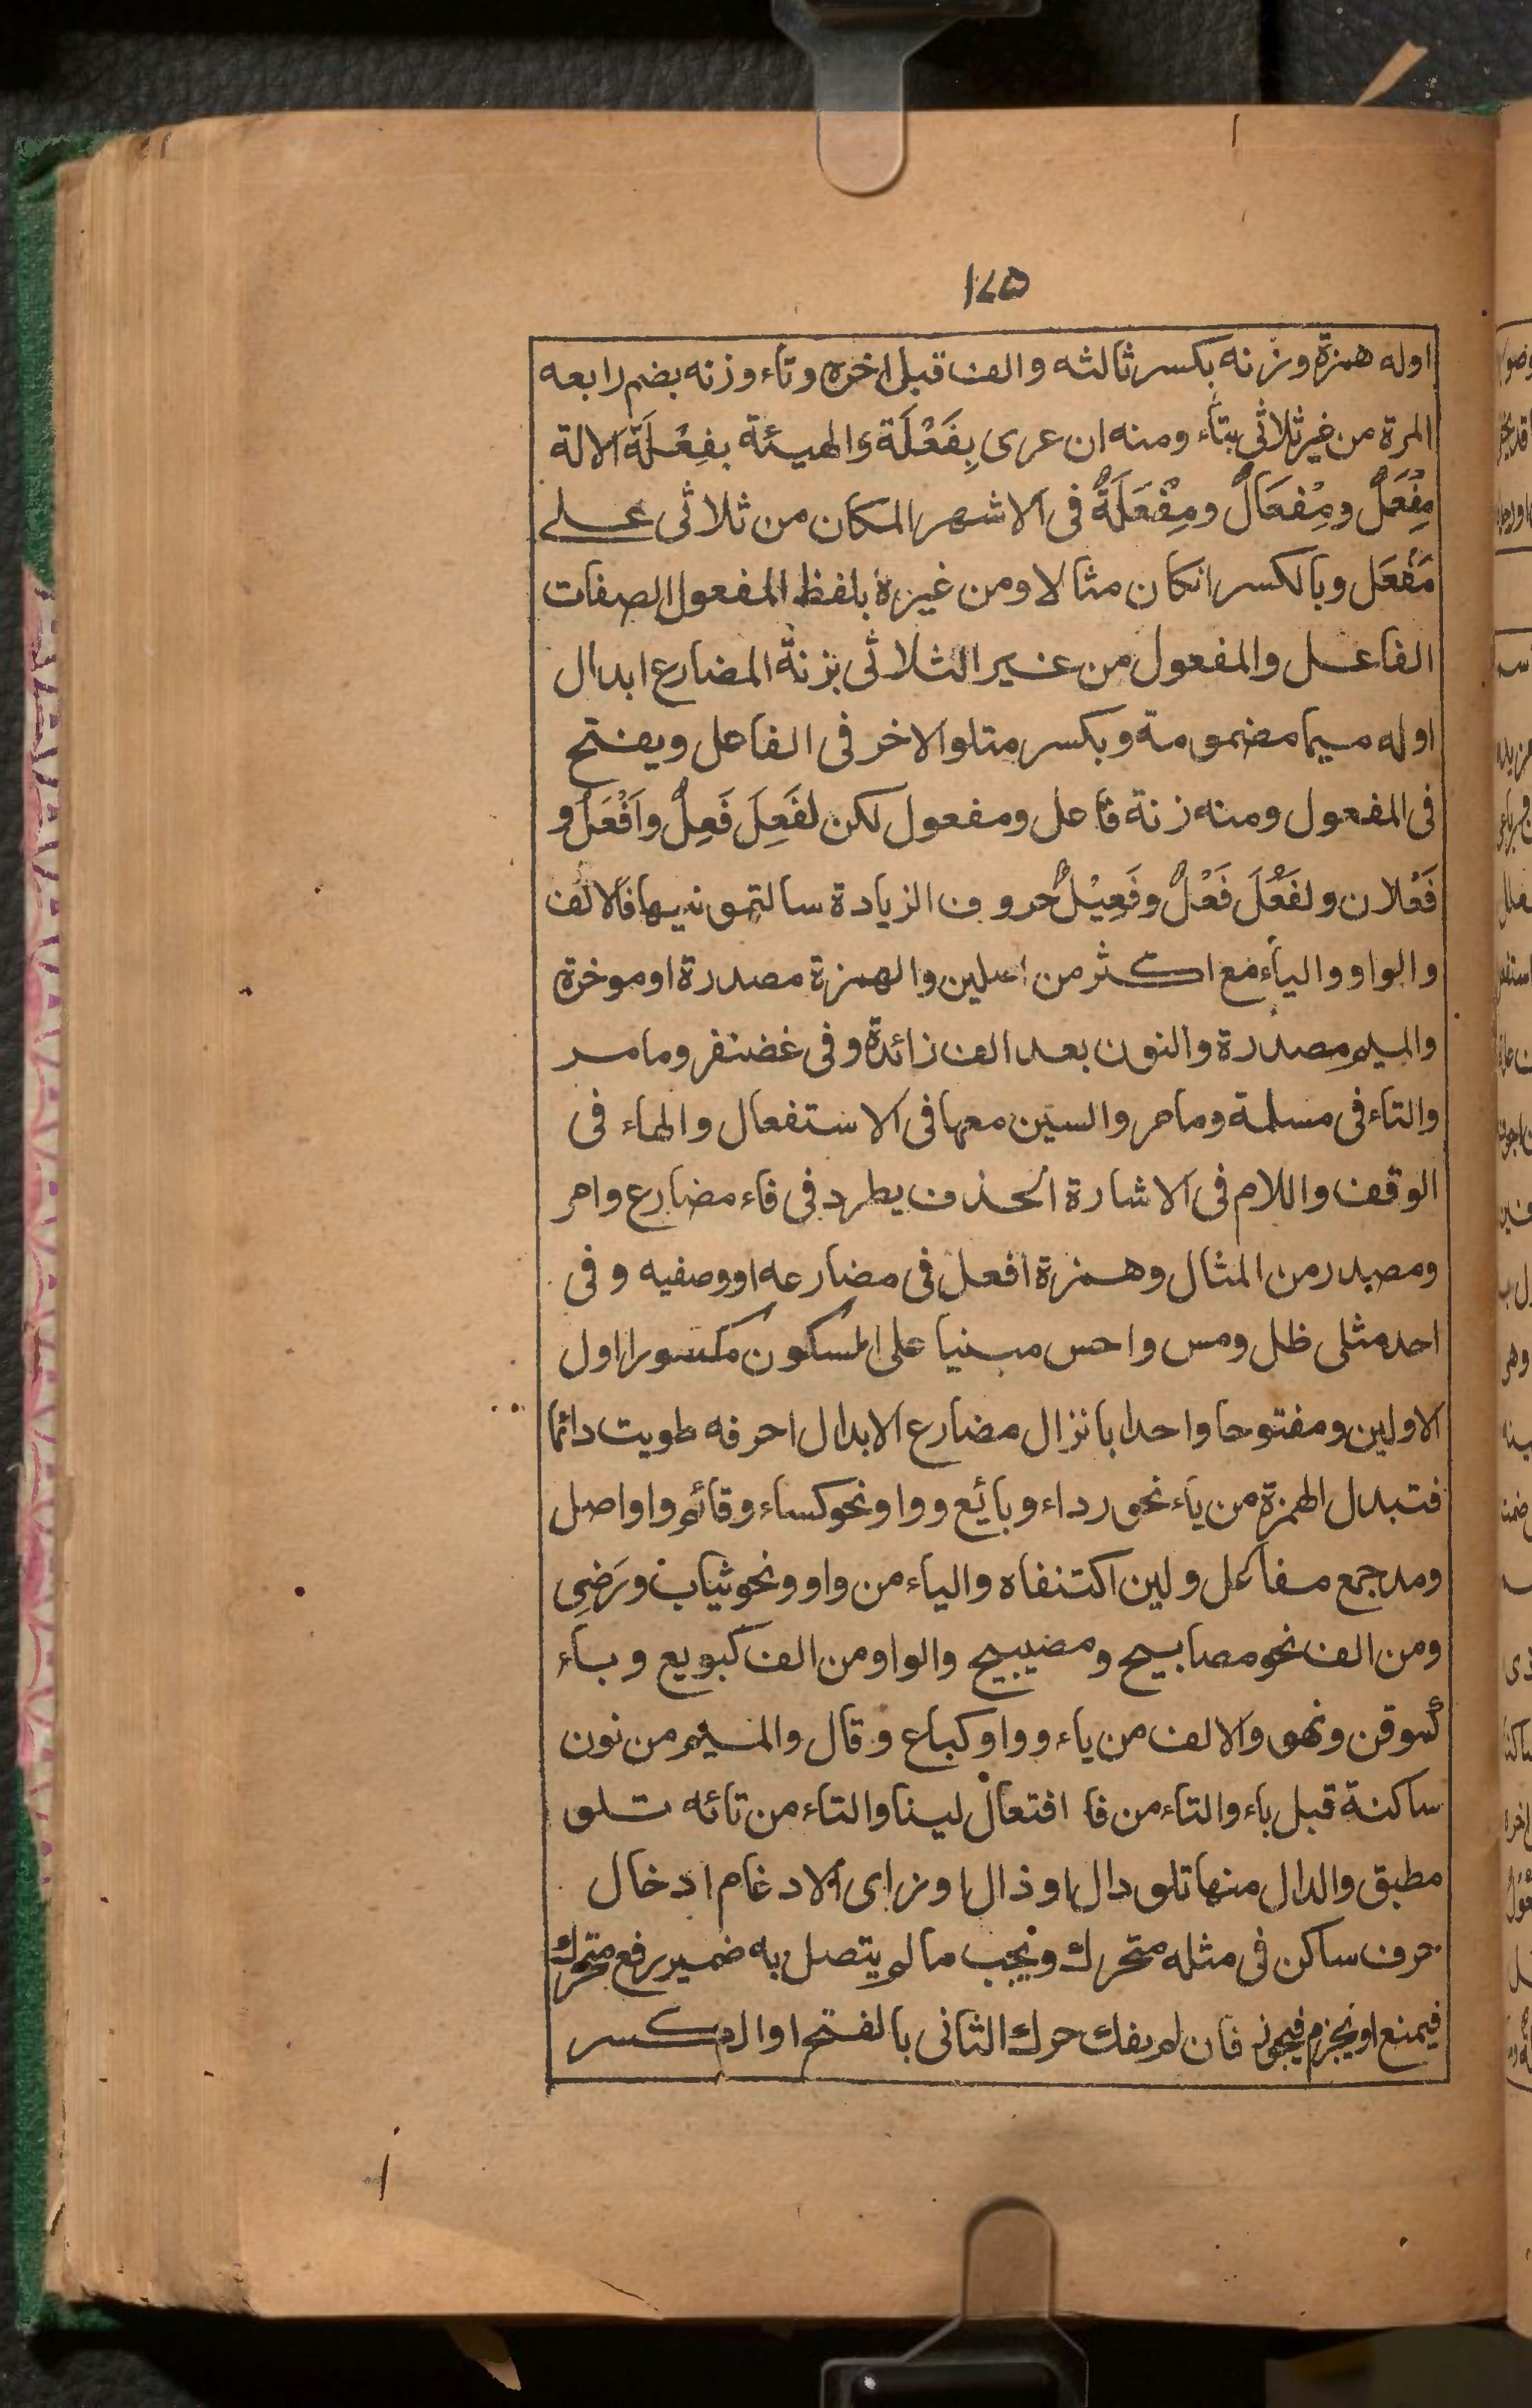 ١٧٥
اوله همزة وزنه بكسر ثالثه والف قبل اخره وتاء وزنه بضم رابعه
المرة من غير ثلاثي بتاء ومنه ان عرى بِفَعْلَة والهيئة بفِعْلَة الالة
مِفْعَلٌ ومِفْعَالٌ ومِفْعَلَةٌ فى الاشهر المكان من ثلاثى على
مَفْعَل وبالكسر انكان مثالا ومن غيره بلفظ المفعول الصفات
الفاعل والمفعول من غير الثلاثى بزنة المضارع ابدال
اوله ميما مضمومة وبكسر متلو الاخر فى الفاعل ويفتح
فى المفعول ومنه زنة فاعل ومفعول لكن لفَعِلَ فَعِلٌ واَفْعَلُ و
فَعْلان ولفَعُلَ فَعْلٌ وفَعِيْلٌ حروف الزيادة سالتمونيها فالالف
والواو والياء مع اكثر من اصلين والهمزة مصدرة او موخرة
والميم مصدرة والنون بعد الف زائدة وفى غضنفر ومامر
والتاء فى مسلمة ومامر والسين معها فى الاستفعال والهاء فى
الوقف واللام فى الاشارة الحذف يطرد فى فاء مضارع وامر
ومصدر من المثال وهمزة افعل فى مضارعه او وصفيه وفى
احد مثلى ظل ومس واحس مبنيا على السكون مكسورا اول
الاولين ومفتوحا واحدا بانزال مضارع الابدال احرفه طويت دائما
فتبدل الهمزة من ياء نحو رداء وبائع وواو نحو كساء وقائم واواصل
ومد جمع مفاعل ولين اكتنفاه والياء من واو ونحو ثياب ورَضِى
ومن الف نحو مصابيح ومصيبيح والواو من الف كبويع وياء
كموقن ونهو والالف من ياء وواو كباع وقال والميم من نون
ساكنة قبل باء والتاء من فا افتعال لينا والتاء من تائه تلو
مطبق والدال منها تلو دال او ذال او زاى الادغام ادخال
حرف ساكن فى مثله متحرك ويجب مالم يتصل به ضمير رفع متحرك
فيمنع او يجزم فيجوز فان لم يفك حرك الثانى بالفتح او الكسر